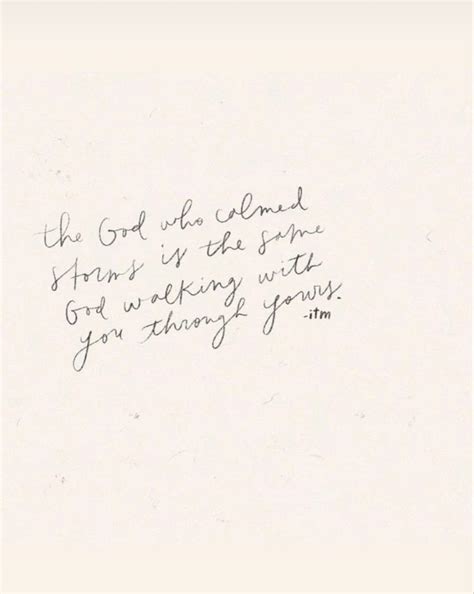 the God who calmed
storms is the same
God walking with
you through yours.
-itm